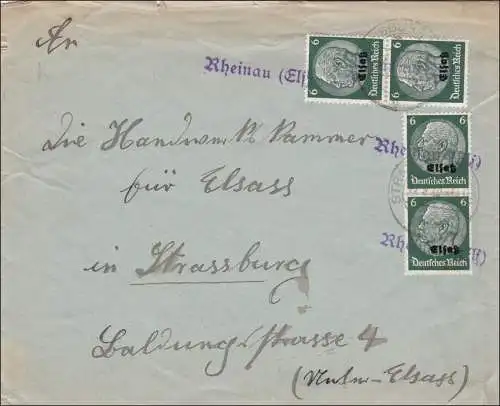 An
6 6
Elsaß Elsaß
Deutsches Reich Deutsches Reich
Rheinau (Els
Die Handwerks Kammer
6
Elsaß
Deutsches Reich
für Elsass
6
Elsaß
Deutsches Reich
in Strassburg
Baldungstrasse 4
(Unter-Elsass)